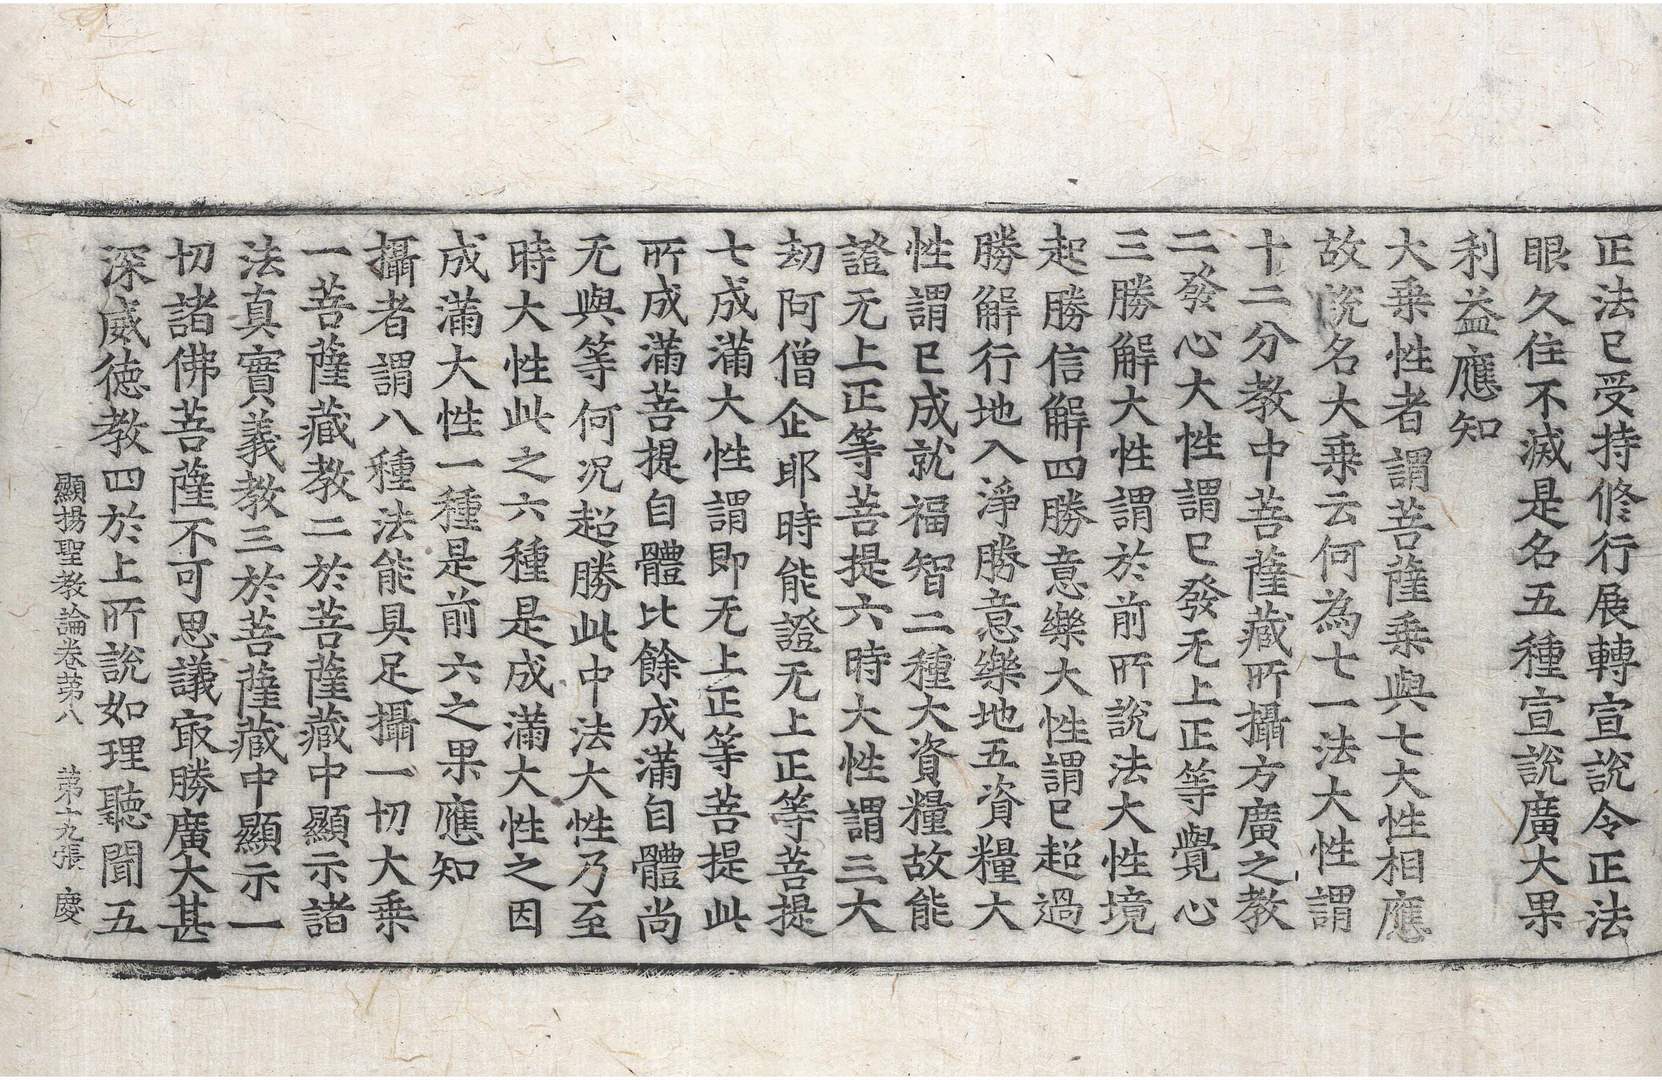 正法已受持修行展轉宣說令正法
眼久住不滅是名五種宣說廣大果
利益應知
大乗性者謂菩薩乗與七大性相應
故說名大乗云何為七一法大性謂
十二分教中菩薩藏所攝方廣之教
二發心大性謂已發无上正等覺心
三勝解大性謂於前所說法大性境
起勝信解四勝意樂大性謂已超過
勝解行地入淨勝意樂地五資糧大
性謂已成就福智二種大資糧故能
證无上正等菩提六時大性謂三大
劫阿僧企耶時能證无上正等菩提
七成滿大性謂即无上正等菩提此
所成滿菩提自體比餘成滿自體尚
无與等何况超勝此中法大性乃至
時大性此之六種是成滿大性之因
成滿大性一種是前六之果應知
攝者謂八種法能具足攝一切大乗
一菩薩藏教二於菩薩藏中顯示諸
法真實義教三於菩薩藏中顯示一
切諸佛菩薩不可思議㝡勝廣大甚
深威德教四於上所說如理聽聞五
顯揚聖教論卷第八 第十九張 慶